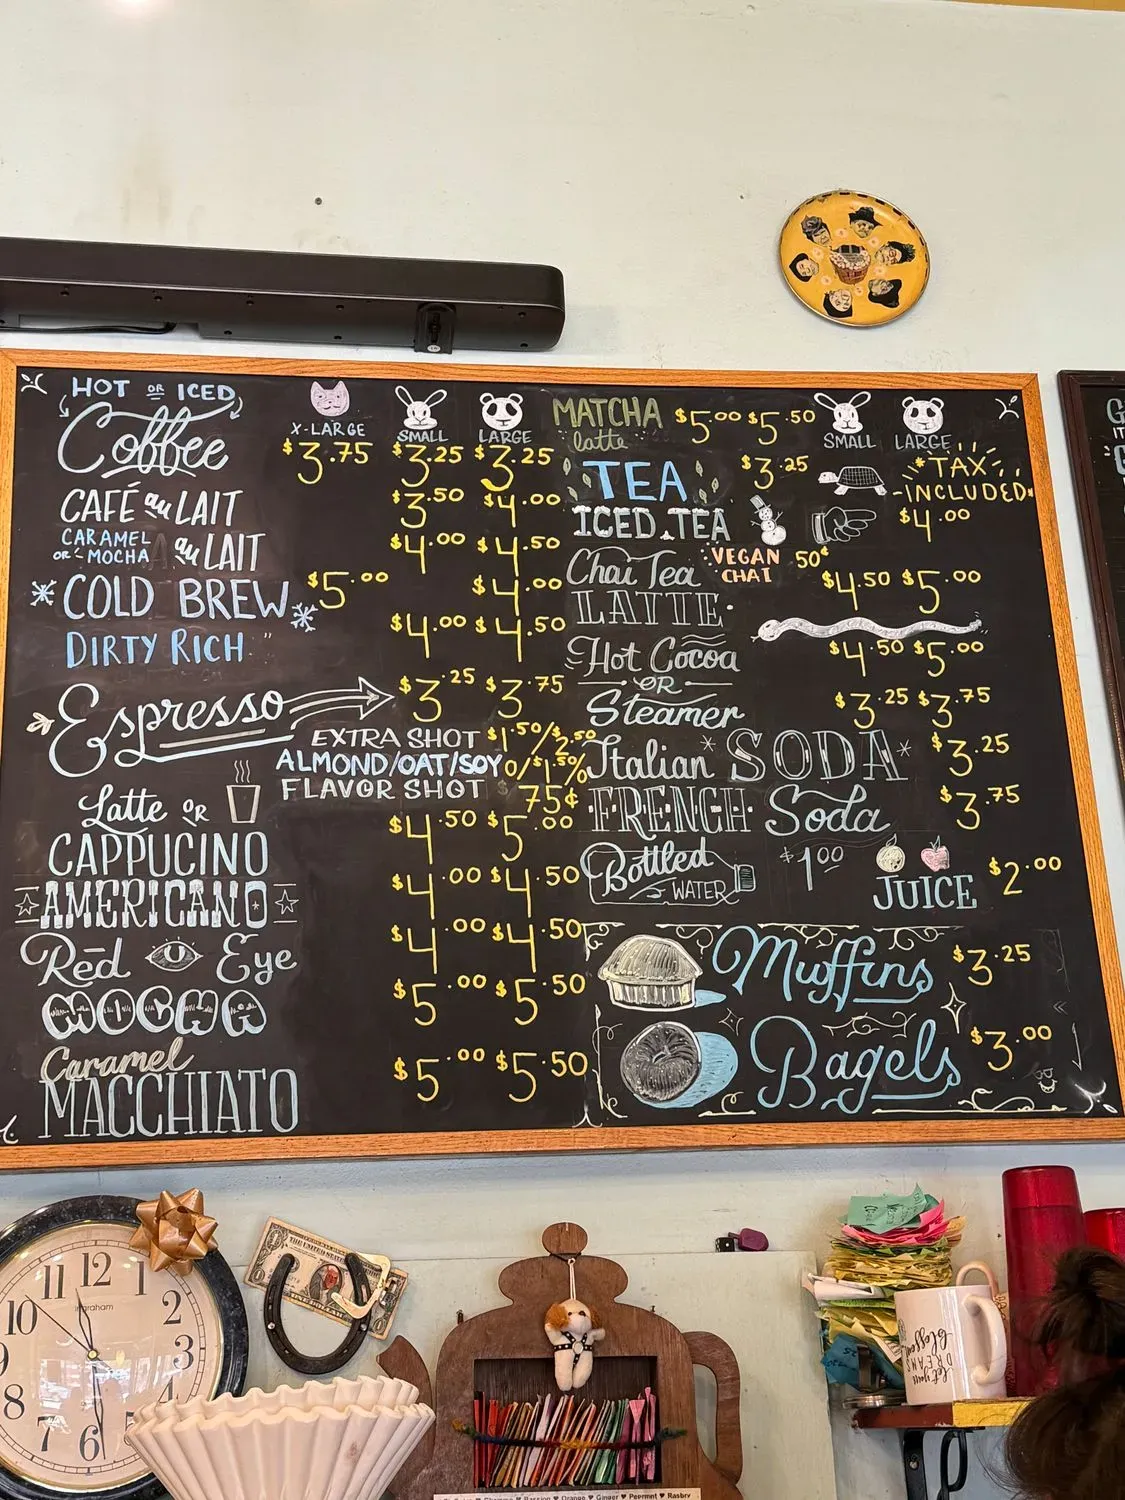 HOT OR ICED
Coffee
X-LARGE SMALL LARGE
$3.75 $3.25 $3.25
CAFÉ au LAIT $3.50 $4.00
CARAMEL OR MOCHA au LAIT $4.00 $4.50
COLD BREW $5.00 $4.00
DIRTY RICH $4.00 $4.50
Espresso $3.25 $3.75
EXTRA SHOT $1.50/$2.50
ALMOND/OAT/SOY
FLAVOR SHOT 75¢
Latte OR
CAPPUCINO $4.50 $5.00
AMERICANO $4.00 $4.50
Red Eye $4.00 $4.50
MOCHA $5.00 $5.50
Caramel
MACCHIATO $5.00 $5.50
MATCHA latte $5.00 $5.50
SMALL LARGE
TEA $3.25
*TAX
-INCLUDED-
ICED TEA $4.00
Chai Tea
LATTE
VEGAN CHAI 50¢
$4.50 $5.00
Hot Cocoa $4.50 $5.00
OR
Steamer $3.25 $3.75
Italian SODA $3.25
FRENCH Soda $3.75
Bottled WATER $1.00
JUICE $2.00
Muffins $3.25
Bagels $3.00
12
1
2
3
4
6
7
8
9
10
11